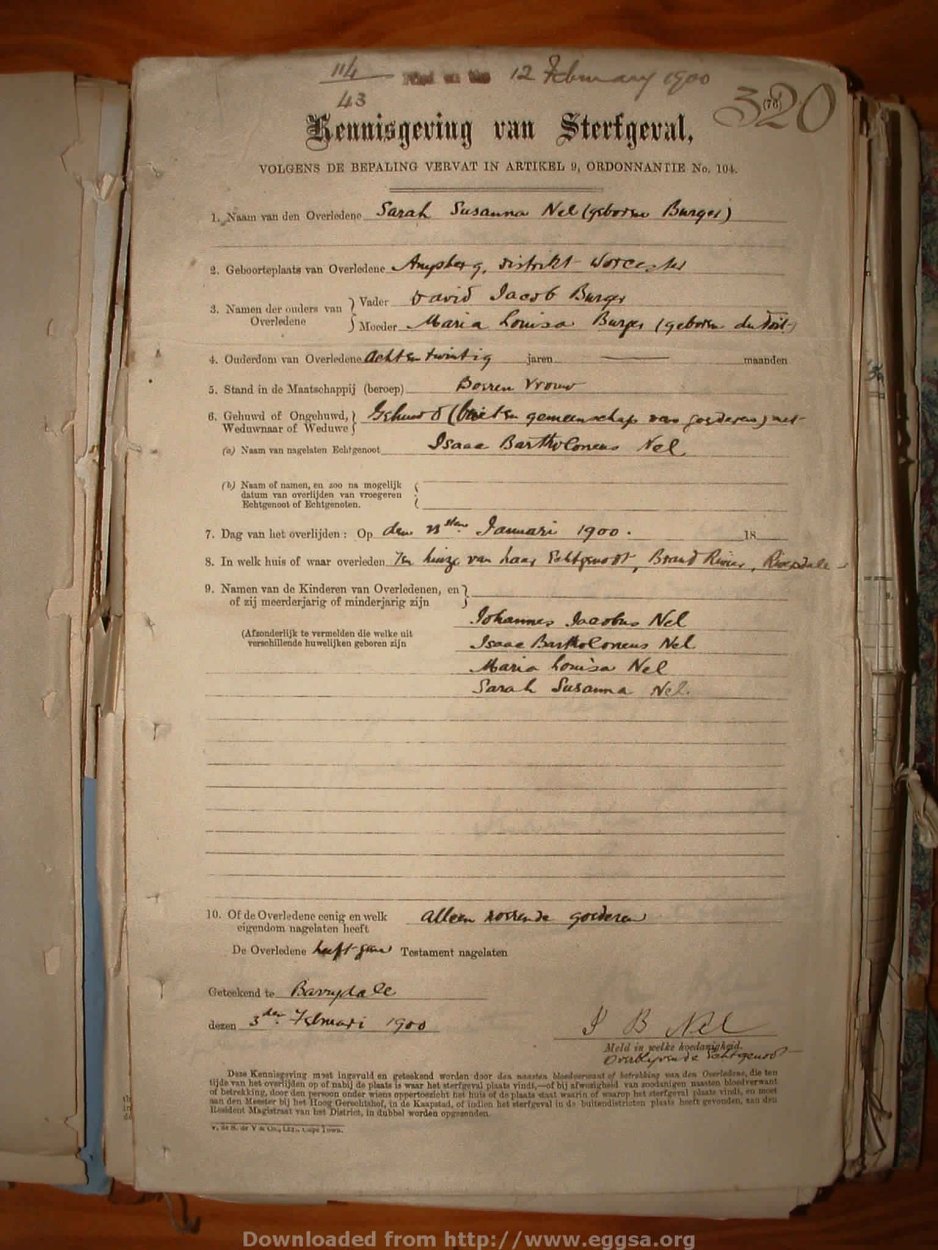 114
43
Filed on the 12 February 1900
320
(76)
Kennisgeving van Sterfgeval,
VOLGENS DE BEPALING VERVAT IN ARTIKEL 9, ORDONNANTIE No. 104.
1. Naam van den Overledene Sarah Susanna Nel (geboren Burger)
2. Geboorteplaats van Overledene distrikt Worcester
3. Namen der ouders van Overledene } Vader David Jacob Burger
Moeder Maria Louisa Burger (geboren du Toit)
4. Ouderdom van Overledene Acht en twintig jaren — maanden
5. Stand in de Maatschappij (beroep) Boeren Vrouw
6. Gehuwd of Ongehuwd, Weduwnaar of Weduwe } Gehuwd (buiten gemeenschap van goederen) met
(a) Naam van nagelaten Echtgenoot Isaac Bartholomeus Nel
(b) Naam of namen, en zoo na mogelijk
datum van overlijden van vroegeren
Echtgenoot of Echtgenoten.
7. Dag van het overlijden : Op den sten Januari 1900. 18
8. In welk huis of waar overleden Ten huize van haar Echtgenoot, Brand Rivier, Riversdale
9. Namen van de Kinderen van Overledenen, en
of zij meerderjarig of minderjarig zijn
Johannes Jacobus Nel
(Afzonderlijk te vermelden die welke uit
verschillende huwelijken geboren zijn
Isaac Bartholomeus Nel
Maria Louisa Nel
Sarah Susanna Nel.
10. Of de Overledene eenig en welk
eigendom nagelaten heeft Alleen roerende goederen
De Overledene heeft geen Testament nagelaten
Geteekend te Barrydale
dezen 3den Februari 1900
I B Nel
Meld in welke hoedanigheid.
Overblijvende Echtgenoot
Deze Kennisgeving moet ingevuld en geteekend worden door den naasten bloedverwant of betrekking van den Overledene, die ten
tijde van het overlijden op of nabij de plaats is waar het sterfgeval plaats vindt,—of bij afwezigheid van zoodanigen naasten bloedverwant
of betrekking, door den persoon onder wiens oppertoezicht het huis of de plaats staat waarin of waarop het sterfgeval plaats vindt, en moet
aan den Meester bij het Hoog Gerechtshof, in de Kaapstad, of indien het sterfgeval in de buitendistricten plaats heeft gevonden, aan den
Resident Magistraat van het District, in dubbel worden opgezonden.
V. de S. de V & Co., Ltd., Cape Town.
Downloaded from http://www.eggsa.org